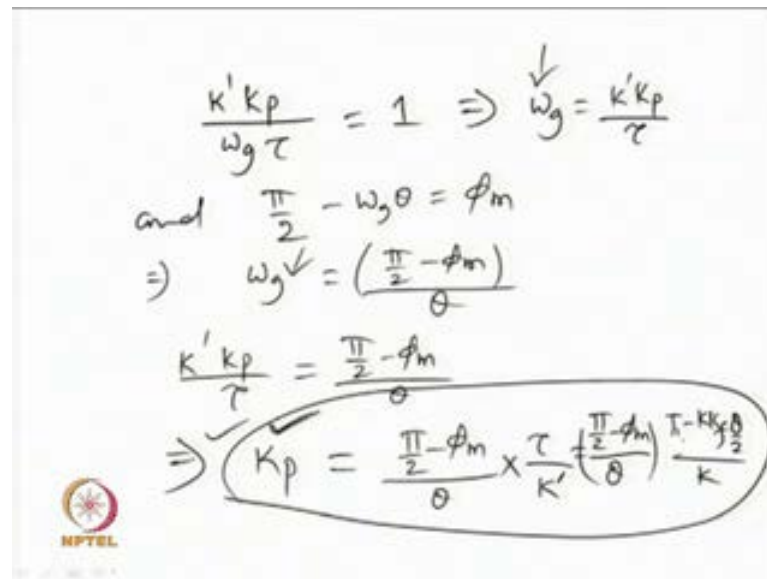 K' Kp / ωg τ = 1 ⇒ ωg = K' Kp / τ
and π/2 - ωg θ = φm
⇒ ωg = (π/2 - φm) / θ
K' Kp / τ = π/2 - φm / θ
⇒ Kp = π/2 - φm / θ × τ / K' = (π/2 - φm / θ)
NPTEL